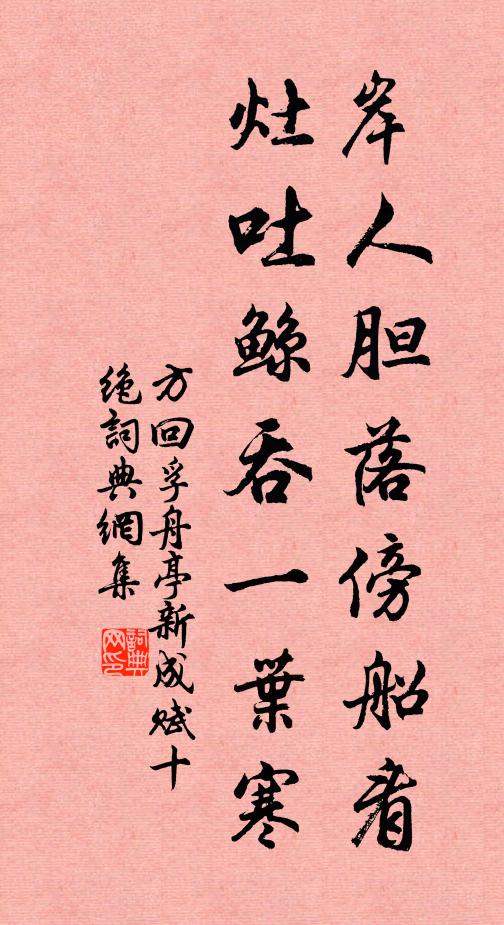 岸人胆落傍船看
灶吐鲸吞一葉寒
方回孚舟亭新成赋十
绝詞典網集
詞典網印